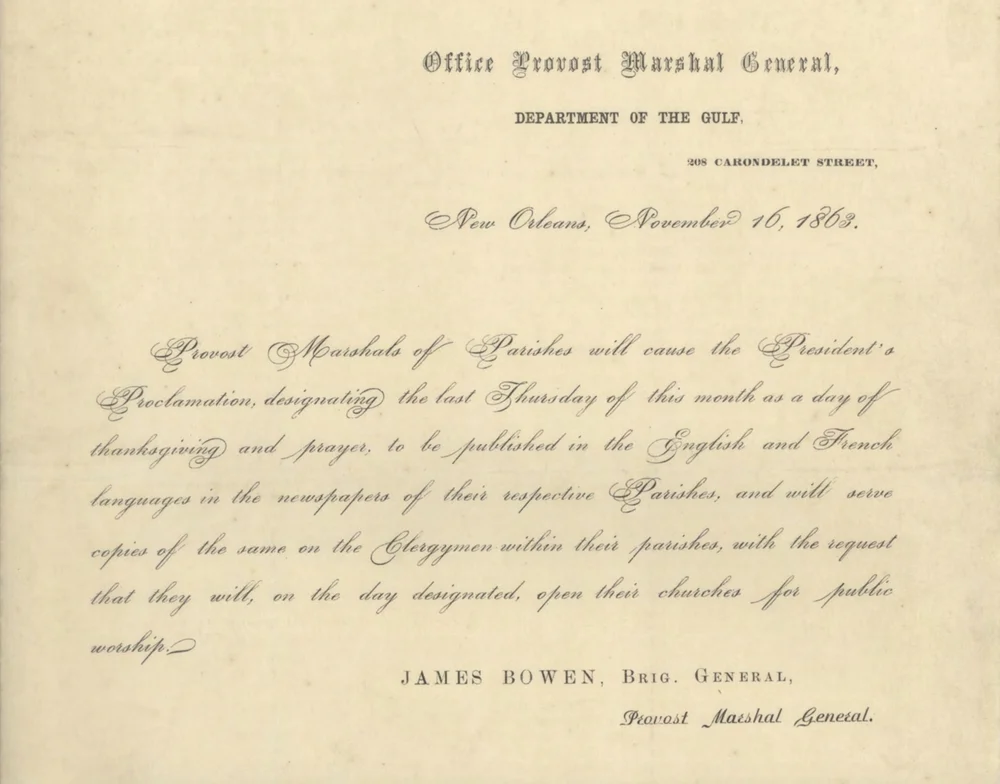 Office Provost Marshal General,
DEPARTMENT OF THE GULF,
208 CARONDELET STREET,
New Orleans, November 16, 1863.
Provost Marshals of Parishes will cause the President's
Proclamation, designating the last Thursday of this month as a day of
thanksgiving and prayer, to be published in the English and French
languages in the newspapers of their respective Parishes, and will serve
copies of the same on the Clergymen within their parishes, with the request
that they will, on the day designated, open their churches for public
worship.
JAMES BOWEN, BRIG. GENERAL,
Provost Marshal General.